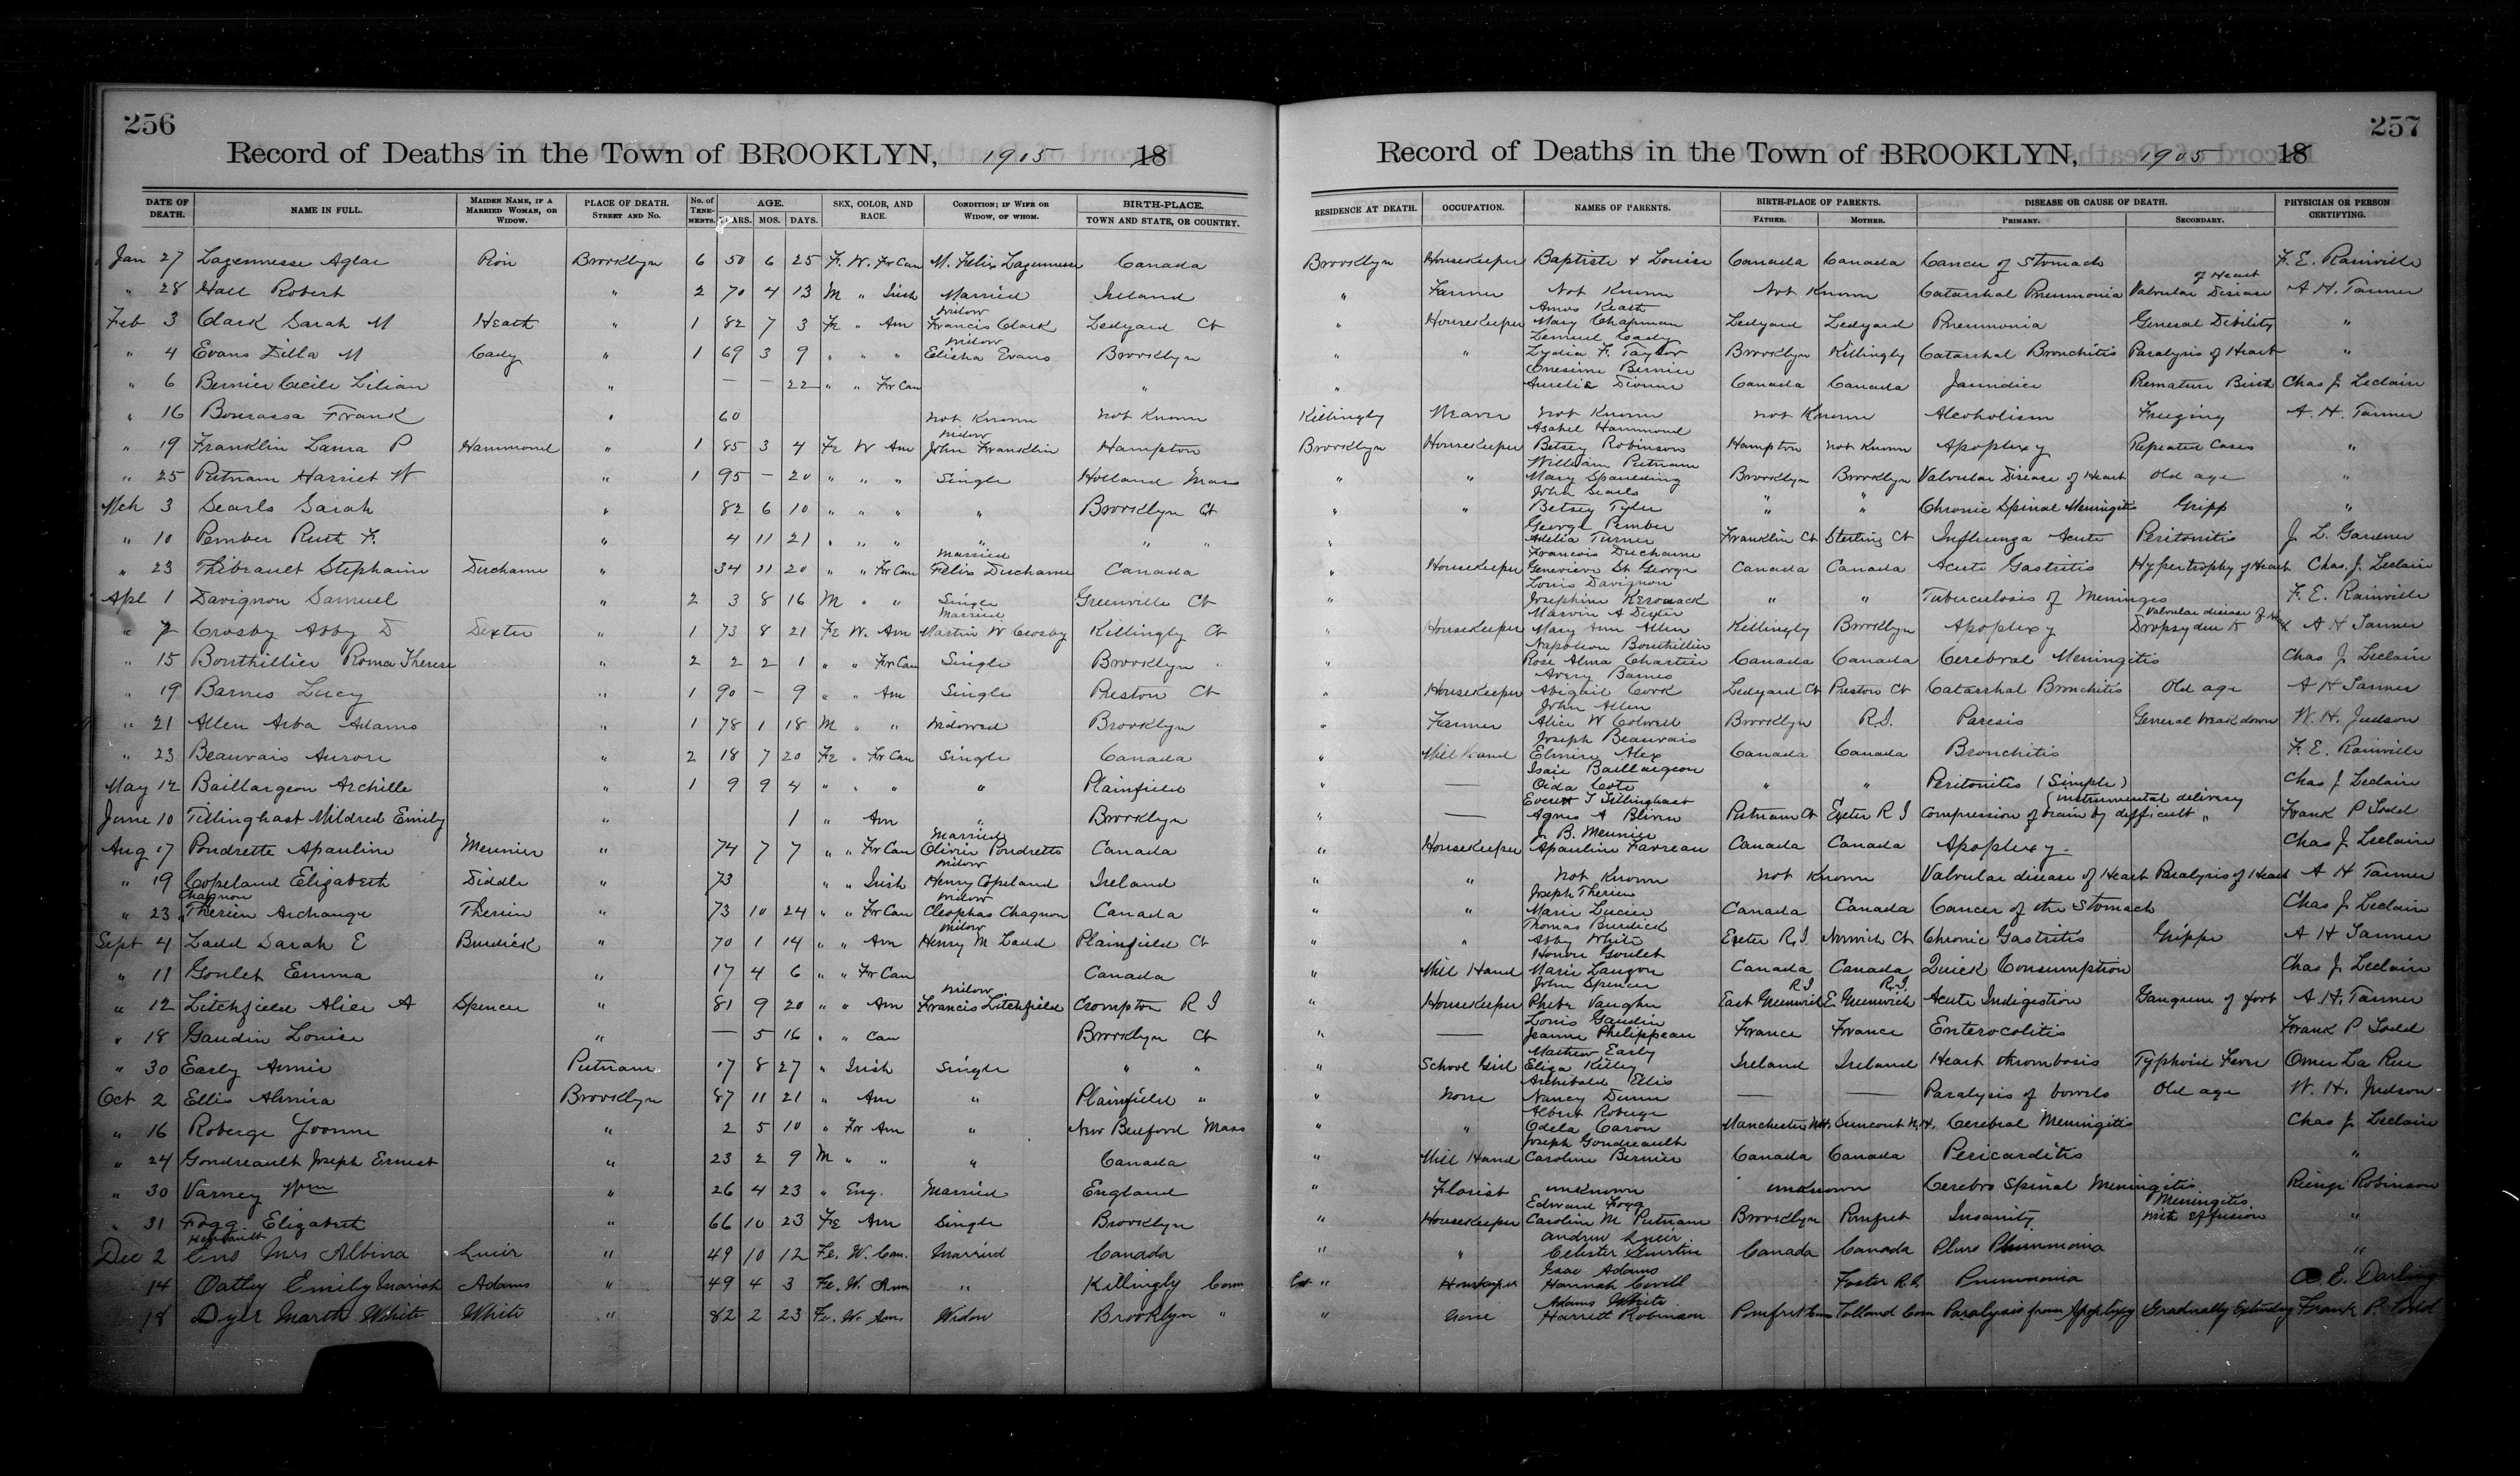 256
Record of Deaths in the Town of BROOKLYN, 1905 18
DATE OF DEATH. NAME IN FULL. MAIDEN NAME, IF A MARRIED WOMAN, OR WIDOW. PLACE OF DEATH. STREET AND NO. No. of TENEMENTS. AGE. YEARS. MOS. DAYS. SEX, COLOR, AND RACE. CONDITION; IF WIFE OR WIDOW, OF WHOM. BIRTH-PLACE. TOWN AND STATE, OR COUNTRY.
Jan 27 Lagennesse Aglae Pion Brooklyn 6 50 6 25 F. W. Fr Can M. Felix Lagennesse Canada
" 28 Hall Robert " 2 70 4 13 M " Irish Married Ireland
Feb 3 Clark Sarah M Heath " 1 82 7 3 Fe " Am Widow Francis Clark Ledyard Ct
" 4 Evans Dilla M Cady " 1 69 3 9 " " " Widow Elisha Evans Brooklyn
" 6 Bernier Cecile Lilian " — — 22 " " Fr Can "
" 16 Bourassa Frank " 60 not Known not Known
" 19 Franklin Laura P Hammond " 1 85 3 4 Fe W Am Widow John Franklin Hampton
" 25 Putnam Harriet W " 1 95 — 20 " " " Single Holland Mass
Mch 3 Searls Sarah " 82 6 10 " " " " Brooklyn Ct
" 10 Pember Ruth F. " 4 11 21 " " " " " "
" 23 Thibrault Stephanie Duchame " 34 11 20 " " Fr Can Married Felix Duchame Canada
Apl 1 Davignon Samuel " 2 3 8 16 M " " Single Greenville Ct
" 7 Crosby Abby D Dexter " 1 73 8 21 Fe W. Am Married Martin W Crosby Killingly Ct
" 15 Bouthillier Roma Therese " 2 2 2 1 " " Fr Can Single Brooklyn "
" 19 Barnes Lucy " 1 90 — 9 " " Am Single Preston Ct
" 21 Allen Arba Adams " 1 78 1 18 M " " Widowed Brooklyn
" 23 Beauvais Aurore " 2 18 7 20 Fe " Fr Can Single Canada
May 12 Baillargeon Archille " 1 9 9 4 " " " " Plainfield
June 10 Tillinghast Mildred Emily " 1 " Am " Brooklyn
Aug 17 Poudrette Apauline Meunier " 74 7 7 " " Fr Can Married Olivier Poudrette Canada
" 19 Copeland Elizabeth Diddle " 73 " " Irish Widow Henry Copeland Ireland
" 23 Chagnon Therien Archange Therien " 73 10 24 " " Fr Can Widow Cleophas Chagnon Canada
Sept 4 Ladd Sarah E Burdick " 70 1 14 " " Am Widow Henry M Ladd Plainfield Ct
" 11 Goulet Emma " 17 4 6 " " Fr Can Canada
" 12 Litchfield Alice A Spencer " 81 9 20 " " Am Widow Francis Litchfield Crompton R I
" 18 Gaudin Louise " — 5 16 " " Can Brooklyn Ct
" 30 Early Annie Putnam 17 8 27 " Irish Single " "
Oct 2 Ellis Almira Brooklyn 87 11 21 " Am " Plainfield "
" 16 Roberge Yvonne " 2 5 10 " Fr Am " New Bedford Mass
" 24 Gondreault Joseph Ernest " 23 2 9 M " " " Canada
" 30 Varney Wm " 26 4 23 " Eng. Married England
" 31 Fogg. Elizabeth " 66 10 23 Fe Am Single Brooklyn
Dec 2 Mrs Albina " 49 10 12 Fe. W. Can. Married Canada
14 Oatley Emily Mariah Adams " 49 4 3 Fe. W. Am " Killingly Conn
18 Dyer Marth White White " 82 2 23 Fe. W. Am. Widow Brooklyn "
257
Record of Deaths in the Town of BROOKLYN, 1905 18
RESIDENCE AT DEATH. OCCUPATION. NAMES OF PARENTS. BIRTH-PLACE OF PARENTS. FATHER. MOTHER. DISEASE OR CAUSE OF DEATH. PRIMARY. SECONDARY. PHYSICIAN OR PERSON CERTIFYING.
Brooklyn Housekeeper Baptiste & Louise Canada Canada Cancer of Stomach F. E. Rainville
" Farmer Not Known Not Known Catarrhal Pneumonia Valvular Disease of Heart A. H. Tanner
" Housekeeper Amos Heath Mary Chapman Ledyard Ledyard Pneumonia General Dibility "
" " Lemuel Cady Lydia F. Taylor Brooklyn Killingly Catarrhal Bronchitis Paralysis of Heart "
" Onesime Bernier Aurelie Dionne Canada Canada Jaundice Premature Birth Chas J. Leclaire
Killingly Weaver not Known not Known Alcoholism Freezing A. H. Tanner
Brooklyn Housekeeper Asahel Hammond Betsey Robinson Hampton not Known Apoplexy Repeated Cases "
" " William Putnam Mary Spaulding Brooklyn Brooklyn Valvular Disease of Heart Old age "
" " John Searls Betsey Tyler " " Chronic Spinal Meningitis Gripp "
" George Pember Adelia Turner Franklin Ct Sterling Ct Influenza Acute Peritonitis J. L. Gardner
" Housekeeper Francois Duchame Genevieve St George Canada Canada Acute Gastritis Hypertrophy of Heart Chas. J. Leclaire
" Louis Davignon Josephine Keroack " " Tuberculosis of Meninges F. E. Rainville
" Housekeeper Marvin A Dexter Mary Ann Allen Killingly Brooklyn Apoplexy Valvular disease of Dropsy due A H Tanner
" Napoleon Bouthillier Rose Alma Chartier Canada Canada Cerebral Meningitis Chas J. Leclaire
" Housekeeper Avery Barnes Abigail Cook Ledyard Ct Preston Ct Catarrhal Bronchitis Old age A H Tanner
" Farmer John Allen Alice W Colwell Brooklyn R.I. Paresis General breakdown W. H. Judson
" Mill Hand Joseph Beauvais Elmire Alex Canada Canada Bronchitis F. E. Rainville
" — Isaie Baillargeon Oida Cote " " Peritonitis (Simple) Chas J. Leclaire
" — Everett T Tillinghast Agnes A Bliven Putnam Ct Exeter R I Compression of brain by (instrumental delivery difficult " Frank P Todd
" Housekeeper J. B. Meunier Apauline Favreau Canada Canada Apoplexy. Chas J. Leclaire
" " not Known not Known Valvular disease of Heart Paralysis of Heart A H Tanner
" " Joseph Therien Marie Lucier Canada Canada Cancer of the Stomach Chas J. Leclaire
" " Thomas Burdick Abby White Exeter R.I. Norwich Ct Chronic Gastritis Grippe A H Tanner
" Mill Hand Honore Goulet Marie Langon Canada Canada Quick Consumption Chas J. Leclaire
" Housekeeper John Spencer Phebe Vaughn East Greenwich R I E. Greenwich R.I. Acute Indigestion Gangrene of foot A. H. Tanner
" — Louis Gaudin Jeanne Philippeau France France Enterocolitis Frank P Todd
" School Girl Mathew Early Eliza Killey Ireland Ireland Heart thrombosis Typhoid Fever Omer La Rue
" None Archibald Ellis Nancy Dunn — — Paralysis of bowels Old age W. H. Judson
" " Albert Roberge Odela Caron Manchester N.H. Suncook N.H. Cerebral Meningitis Chas J. Leclaire
" Mill Hand Joseph Gondreault Caroline Bernier Canada Canada Pericarditis "
" Florist unknown unknown Cerebro Spinal Meningitis Rienzi Robinson
" Housekeeper Edward Fogg Caroline M Putnam Brooklyn Pomfret Insanity Meningitis with effusion "
" " Andrew Lucier Canada Canada Pluro Pneumonia "
" Housekeeper Isac Adams Hannah Covill Foster R.I. Pneumonia E. Darling
" None Adams White Harriett Robinson Pomfret Conn Tolland Conn Paralysis from Apoplexy Gradually Extending Frank P. Todd